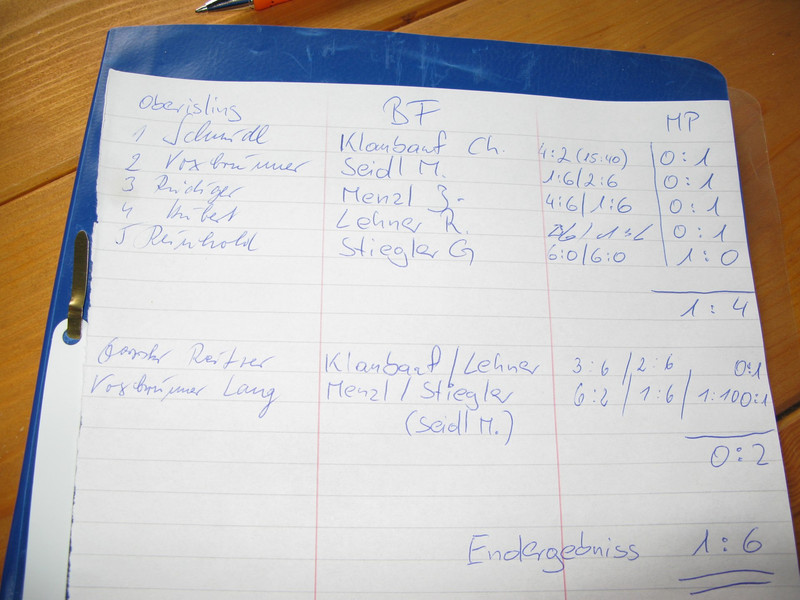 Oberisling BF MP
1 Schmidl Klanbauf Ch. 4:2 (15:40) 0:1
2 Voxbrunner Seidl M. 1:6/2:6 0:1
3 Rüdiger Menzl J. 4:6/1:6 0:1
4 Hubert Lehner R. 0:1
5 Reinhold Stiegler G 6:0/6:0 1:0
1:4
Reitzer Klanbauf/Lehner 3:6/2:6 0:1
Voxbrunner Lang Menzl/Stiegler 6:2/1:6/1:10 0:1
(Seidl M.)
0:2
Endergebniss 1:6